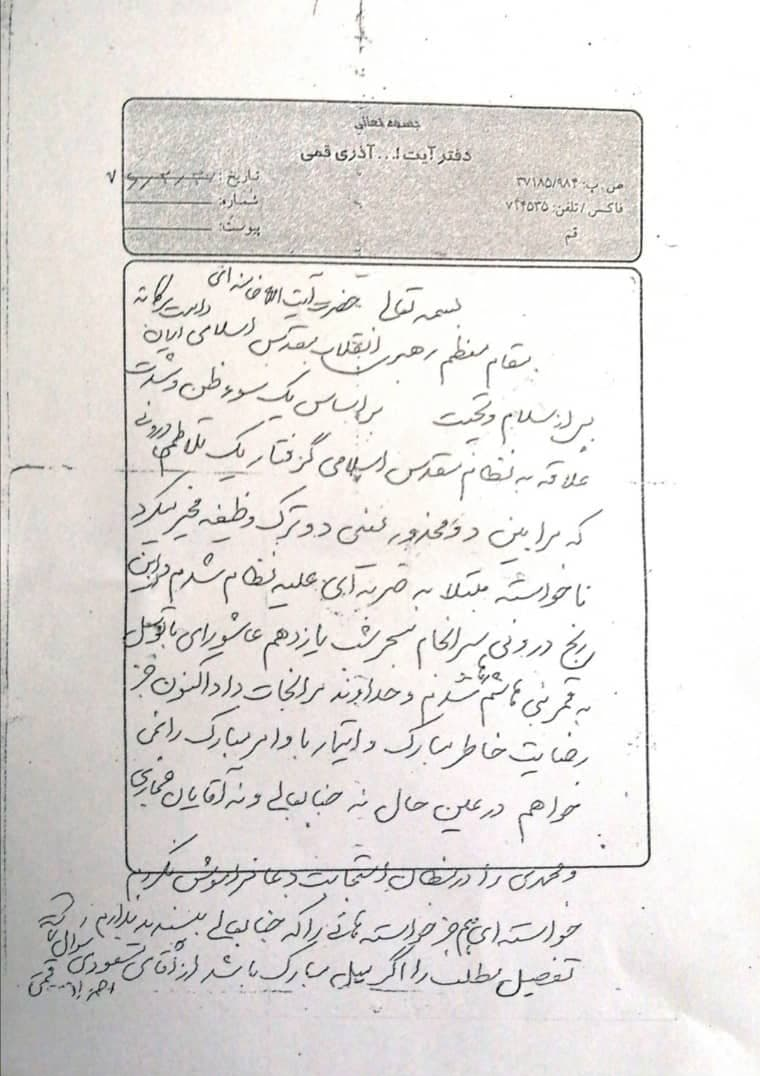 بسمه تعالی
دفتر آیت ا... آذری قمی
ص. پ: ۳۷۱۸۵/۹۸۴
فاکس / تلفن: ۷۴۴۵۳۵
قم
تاریخ:
شماره:
پیوست:
بسمه تعالی حضرت آیت الله خامنه ای دامت برکاته
مقام معظم رهبری انقلاب مقدس اسلامی ایران
پس از سلام و تحیت بر اساس یک سوء ظن و شدت
علاقه به نظام مقدس اسلامی گرفتار یک تلاطم درونی
که مرا بین دو محذور یعنی دو ترک وظیفه مخیر میکرد
ناخواسته مبتلا به ضربه ای علیه نظام شدم و این
رنج درونی سرانجام سحر شب یازدهم عاشورای با توسل
به قمر بنی هاشم شدم و خداوند مرا نجات داد اکنون جز
رضایت خاطر مبارک و ایتمار با وامر مبارک را نمی
خواهم در عین حال نه جنابعالی و نه آقایان
و محمدی را در مظان استجابت دعا فراموش نکردم
خواسته ای هم جز خواسته هائی را که جنابعالی بپسندید ندارم
تفصیل مطلب را اگر میل مبارک باشد از آقای مسعودی سوال
احمد آذری قمی